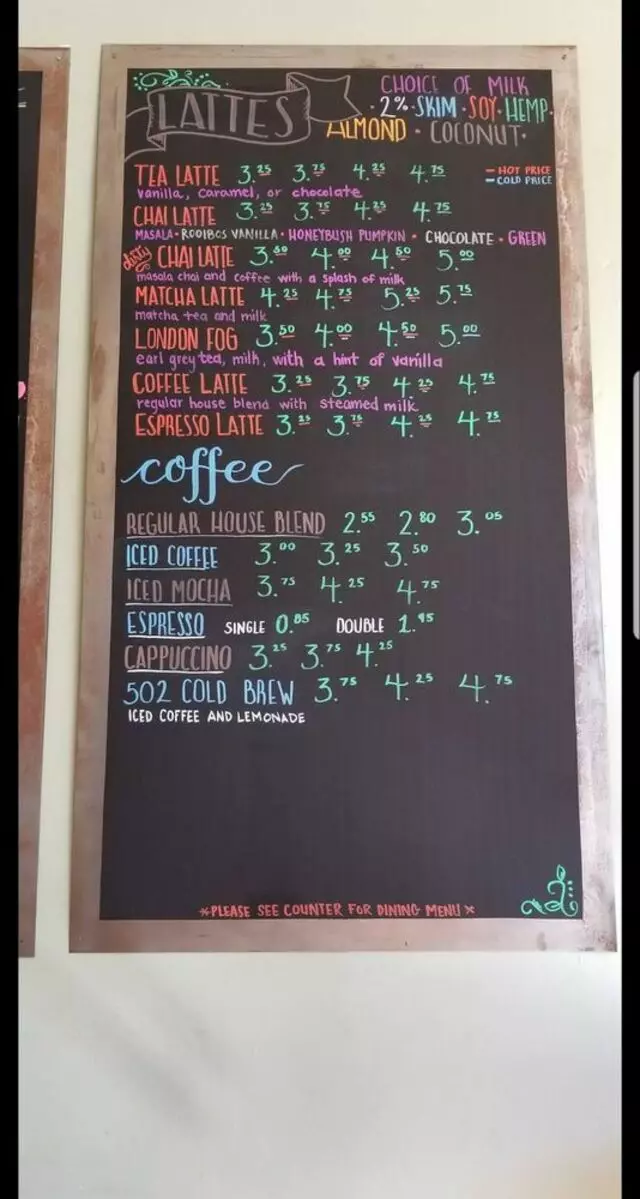 LATTES
CHOICE OF MILK
· 2% · SKIM · SOY · HEMP ·
ALMOND · COCONUT ·
TEA LATTE 3.25 3.75 4.25 4.75
— HOT PRICE
— COLD PRICE
vanilla, caramel, or chocolate
CHAI LATTE 3.25 3.75 4.25 4.75
MASALA · ROOIBOS VANILLA · HONEYBUSH PUMPKIN · CHOCOLATE · GREEN
dirty CHAI LATTE 3.50 4.00 4.50 5.00
masala chai and coffee with a splash of milk
MATCHA LATTE 4.25 4.75 5.25 5.75
matcha tea and milk
LONDON FOG 3.50 4.00 4.50 5.00
earl grey tea, milk, with a hint of vanilla
COFFEE LATTE 3.25 3.75 4.25 4.75
regular house blend with steamed milk
ESPRESSO LATTE 3.25 3.75 4.25 4.75
coffee
REGULAR HOUSE BLEND 2.55 2.80 3.05
ICED COFFEE 3.00 3.25 3.50
ICED MOCHA 3.75 4.25 4.75
ESPRESSO SINGLE 0.85 DOUBLE 1.95
CAPPUCCINO 3.25 3.75 4.25
502 COLD BREW 3.75 4.25 4.75
ICED COFFEE AND LEMONADE
*PLEASE SEE COUNTER FOR DINING MENU*